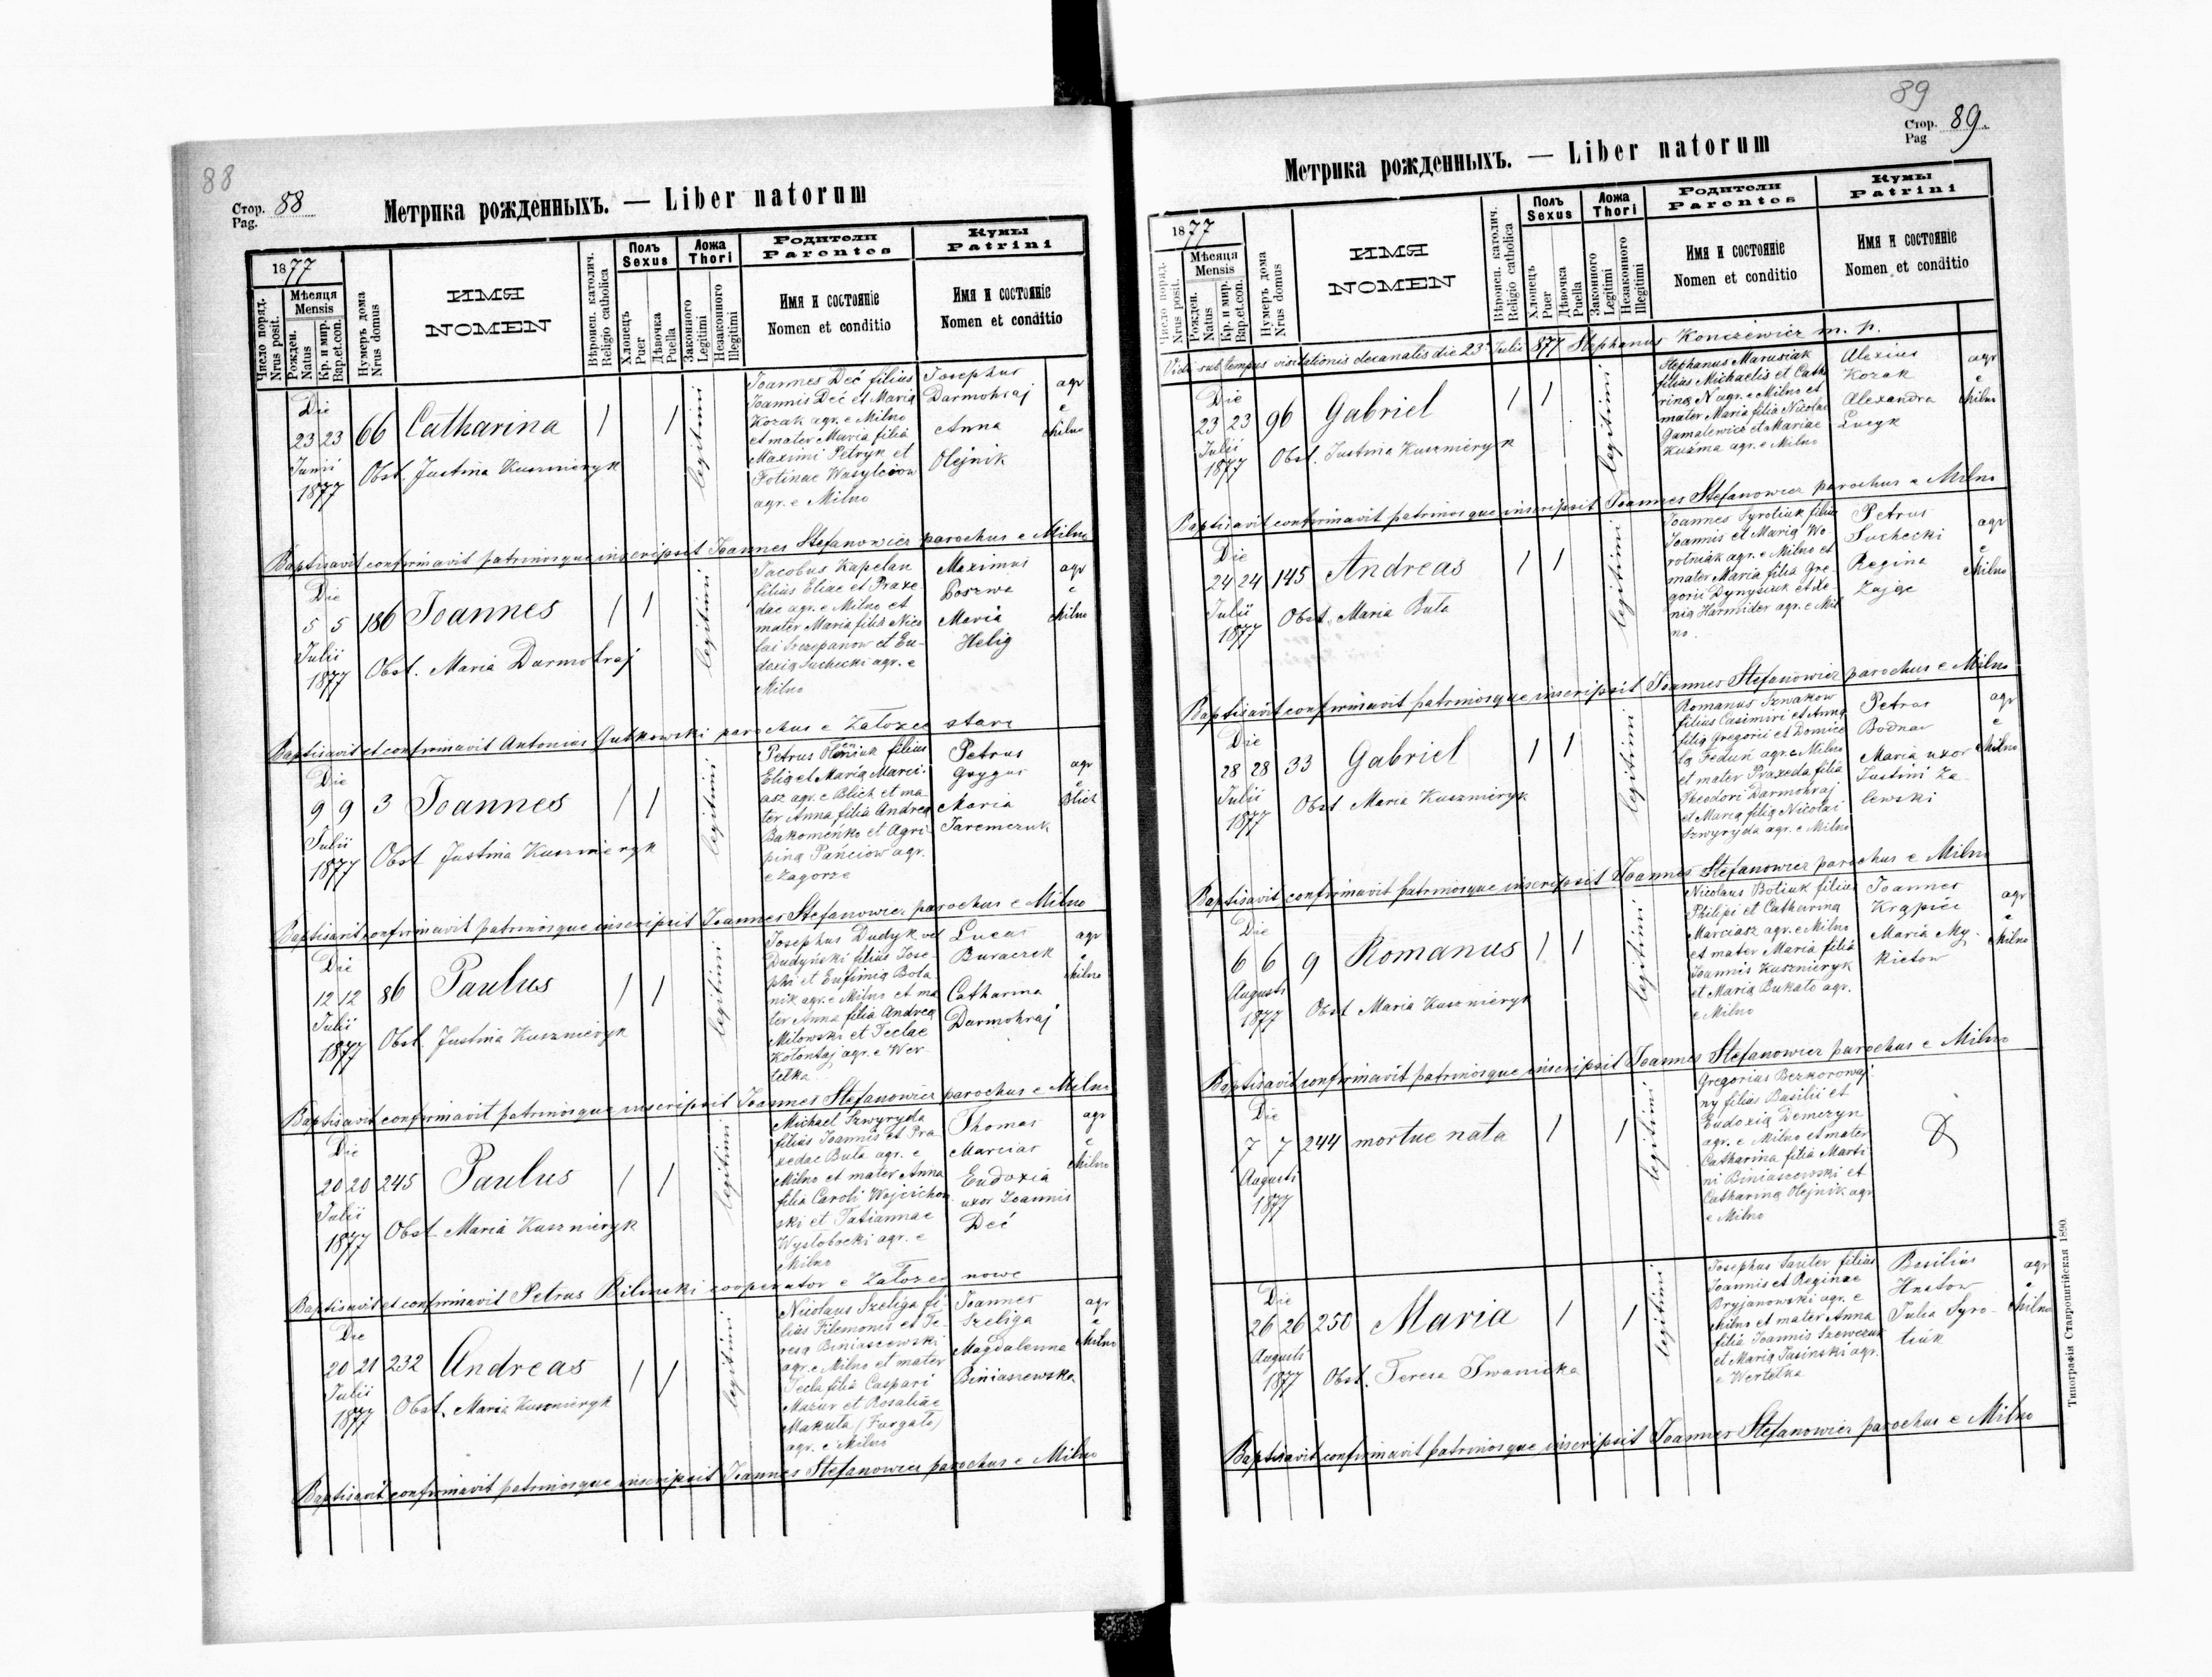 88
Стор. 88
Pag.
Метрика рожденныхъ. — Liber natorum
1877
Число поряд.
Nrus posit.
Мѣсяца
Mensis
Рожден.
Natus
Кр. и мир.
Bap.et.con.
Нумеръ дома
Nrus domus
ИМЯ
NOMEN
Вѣроисп. католич.
Religio catholica
Полъ
Sexus
Хлопецъ
Puer
Дѣвочка
Puella
Ложа
Thori
Законного
Legitimi
Незаконного
Illegitimi
Родители
Parentes
Имя и состояніе
Nomen et conditio
Кумы
Patrini
Имя и состояніе
Nomen et conditio
Die
23 23 66 Catharina 1 1 legitimi
Junii
1877
Obst. Justina Kusznieryk
Joannes Deć filius
Joannis Deć et Maria
Kozak agr. e Milno
et mater Maria filia
Maximi Petryk et
Fotinae Wasylciow
agr. e Milno
Josephus
Darmohraj
Anna
Olejnik
agr
e
Milno
Baptisavit confirmavit patrinosque inscripsit Joannes Stefanowicz parochus e Milno
Die
5 5 186 Joannes 1 1 legitimi
Julii
1877
Obst. Maria Darmohraj
Jacobus Kapelan
filius Eliae et Praxe
dae agr. e Milno et
mater Maria filia Nico
lai Szczepanow et Eu-
doxia Suchecki agr. e
Milno
Maximus
Boszwa
Maria
Helig
agr
e
Milno
Baptisavit et confirmavit Antonius Gutkowski parochus e Załozce stare
Die
9 9 3 Joannes 1 1 legitimi
Julii
1877
Obst Justina Kusznieryk
Petrus Oleniuk filius
Elia et Maria Marci-
asz agr. e Blich et ma
ter Anna filia Andrea
Bakomeńko et Agri-
pina Pańciow agr.
e Zagorze
Petrus
Grygus
Maria
Jaremczuk
agr
e
Blich
Baptisavit confirmavit patrinosque inscripsit Joannes Stefanowicz parochus e Milno
Die
12 12 86 Paulus 1 1 legitimi
Julii
1877
Obst. Justina Kusznieryk
Josephus Dudyk vel
Dudyński filius Jose-
phi et Eufimia Bota
nik agr. e Milno et ma
ter Anna filia Andrea
Milowski et Teclae
Kołontaj agr. e Wer-
tełka
Lucas
Buraczek
Catharina
Darmohraj
agr
e
Milno
Baptisavit confirmavit patrinosque inscripsit Joannes Stefanowicz parochus e Milno
Die
20 20 245 Paulus 1 1 legitimi
Julii
1877
Obst Maria Kusznieryk
Michael Szwyryda
filius Joannis et Pra
xedae Buta agr. e
Milno et mater Anna
filia Caroli Wojcichow
ski et Tatiannae
Wysłobocki agr. e
Milno
Thomas
Marcias
Eudoxia
uxor Joannis
Deć
agr
e
Milno
Baptisavit et confirmavit Petrus Bilinski cooperator e Załozce nowe
Die
20 21 232 Andreas 1 1 legitimi
Julii
1877
Obst. Maria Kusznieryk
Nicolaus Szeliga fi
lius Filemonis et Te-
resa Biniaszewski
agr. e Milno et mater
Tecla filia Caspari
Mazur et Rosaliae
Makuta (Furgało)
agr. e Milno
Joannes
Szeliga
Magdalenna
Biniaszewska
agr
e
Milno
Baptisavit confirmavit patrinosque inscripsit Joannes Stefanowicz parochus e Milno
89
Стор. 89.
Pag
Метрика рожденныхъ. — Liber natorum
1877
Число поряд.
Nrus posit.
Мѣсяца
Mensis
Рожден.
Natus
Кр. и мир.
Bap.et.con.
Нумеръ дома
Nrus domus
ИМЯ
NOMEN
Вѣроисп. католич.
Religio catholica
Полъ
Sexus
Хлопецъ
Puer
Дѣвочка
Puella
Ложа
Thori
Законного
Legitimi
Незаконного
Illegitimi
Родители
Parentes
Имя и состояніе
Nomen et conditio
Кумы
Patrini
Имя и состояніе
Nomen et conditio
Vidi sub tempus visitationis decanalis die 23 Julii 877 Stephanus Konczewicz m. p.
Die
23 23 96 Gabriel 1 1 legitimi
Julii
1877
Obst. Justina Kusznieryk
Stephanus Marusiak
filius Michaelis et Catha
rina N agr. e Milno et
mater Maria filia Nicolai
Gamalewicz et Mariae
Kuźma agr. e Milno
Alexius
Kozak
Alexandra
Lucyk
agr
e
Milno
Baptisavit confirmavit patrinosque inscripsit Joannes Stefanowicz parochus e Milno
Die
24 24 145 Andreas 1 1 legitimi
Julii
1877
Obst. Maria Buta
Joannes Syrotiuk filius
Joannis et Maria Wo
rotniak agr. e Milno et
mater Maria filia Gre
gorii Dynysiuk et Xe-
nia Harmider agr. e Mil
no.
Petrus
Suchecki
Regina
Zając
agr
e
Milno
Baptisavit confirmavit patrinosque inscripsit Joannes Stefanowicz parochus e Milno
Die
28 28 33 Gabriel 1 1 legitimi
Julii
1877
Obst Maria Kusznieryk
Romanus Sznakow
filius Casimiri et Anna
filia Gregorii et Domice
la Feduń agr. e Milno
et mater Praxeda filia
Theodori Darmohraj
et Maria filia Nicolai
Szwyryda agr. e Milno
Petrus
Bodnar
Maria uxor
Justini Za-
lewski
agr
e
Milno
Baptisavit confirmavit patrinosque inscripsit Joannes Stefanowicz parochus e Milno
Die
6 6 9 Romanus 1 1 legitimi
Augusti
1877
Obst Maria Kusznieryk
Nicolaus Botiuk filius
Philipi et Catharina
Marciasz agr. e Milno
et mater Maria filia
Joannis Kusznieryk
et Maria Bukało agr.
e Milno
Joannes
Krąpiec
Maria My-
kietow
agr
e
Milno
Baptisavit confirmavit patrinosque inscripsit Joannes Stefanowicz parochus e Milno
Die
7 7 244 mortue nata 1 1 legitimi
Augusti
1877
Gregorius Bezkorowaj
ny filius Basilii et
Eudoxia Demczyn
agr. e Milno et mater
Catharina filia Marti
ni Biniaszewski et
Catharina Olejnik agr
e Milno
Die
26 26 250 Maria 1 1 legitimi
Augusti
1877
Obst. Teresa Iwanicka
Josephus Sauter filius
Joannis et Reginae
Bryjanowski agr. e
Milno et mater Anna
filia Joannis Szewczuk
et Maria Jasinski agr.
e Wertełka
Basilius
Hnatow
Julia Syro-
tiuk
agr
e
Milno
Baptisavit confirmavit patrinosque inscripsit Joannes Stefanowicz parochus e Milno
Типографія Ставропигійская 1890.